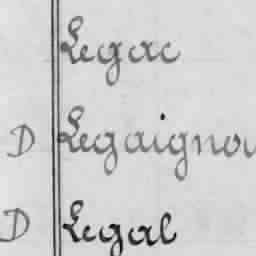 Legac
D Legaignou
D Legal